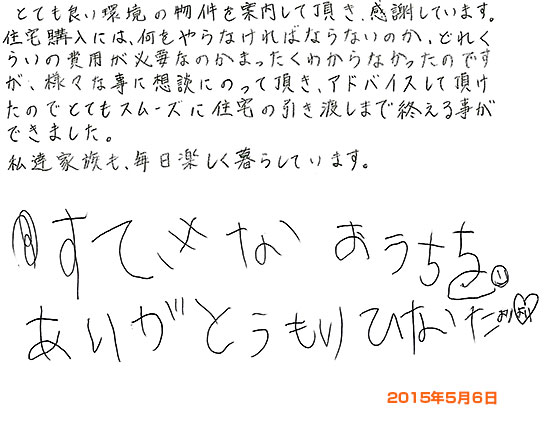 とても良い環境の物件を案内して頂き、感謝しています。
住宅購入には、何をやらなければならないのか、どれく
らいの費用が必要なのかまったくわからなかったのです
が、様々な事に想談にのって頂き、アドバイスして頂け
たのでとてもスムーズに住宅の引き渡しまで終える事が
できました。
私達家族も、毎日楽しく暮らしています。
すてきな おうちを
ありがとう
2015年5月6日